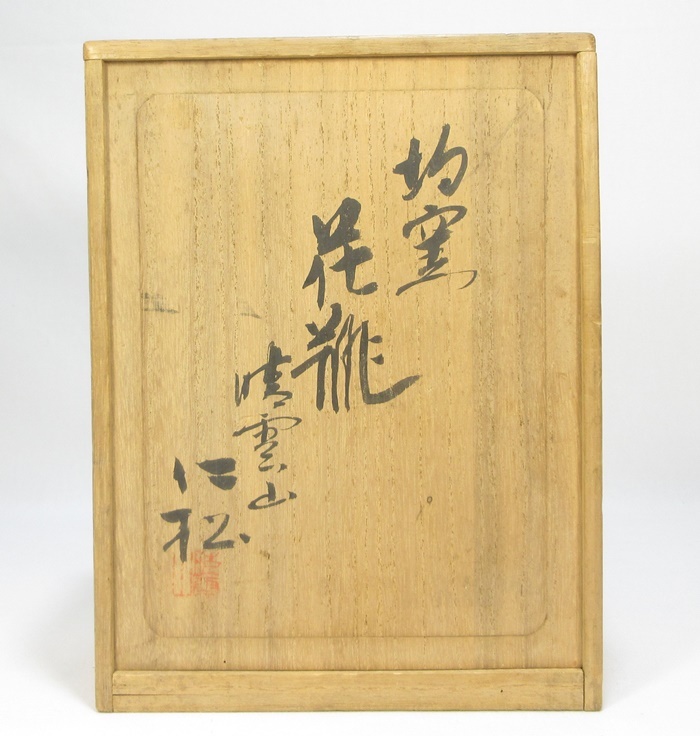 均窯
花瓶
晴雲山
仁松